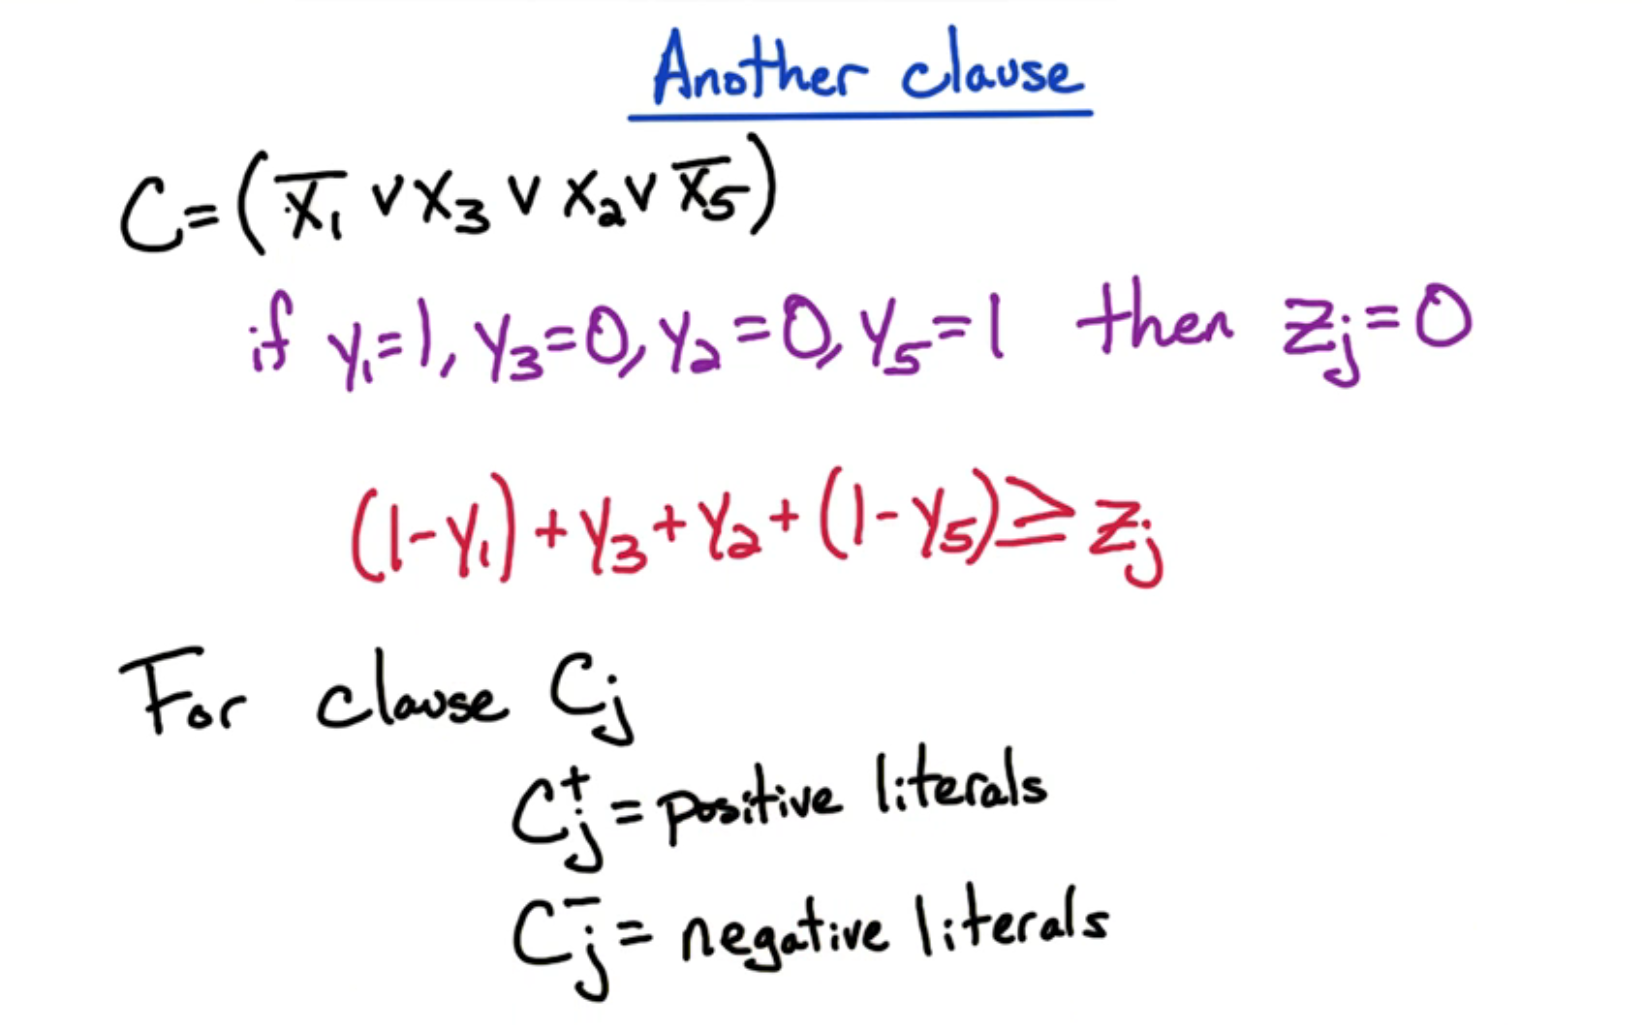 Another clause
C = (x̅₁ ∨ x₃ ∨ x₂ ∨ x̅₅)
if y₁=1, y₃=0, y₂=0, y₅=1 then zⱼ=0
(1-y₁) + y₃ + y₂ + (1-y₅) ≥ zⱼ
For clause Cⱼ
Cⱼ⁺ = positive literals
Cⱼ⁻ = negative literals